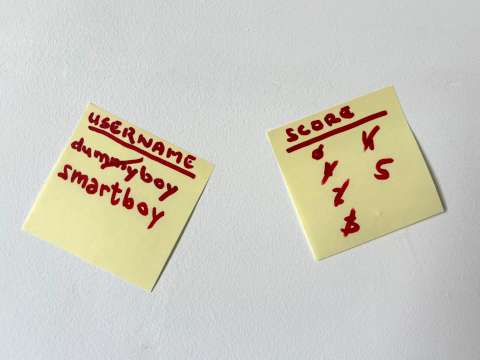 USERNAME
dummyboy
smartboy
SCORE
0
1
2
3
4
5